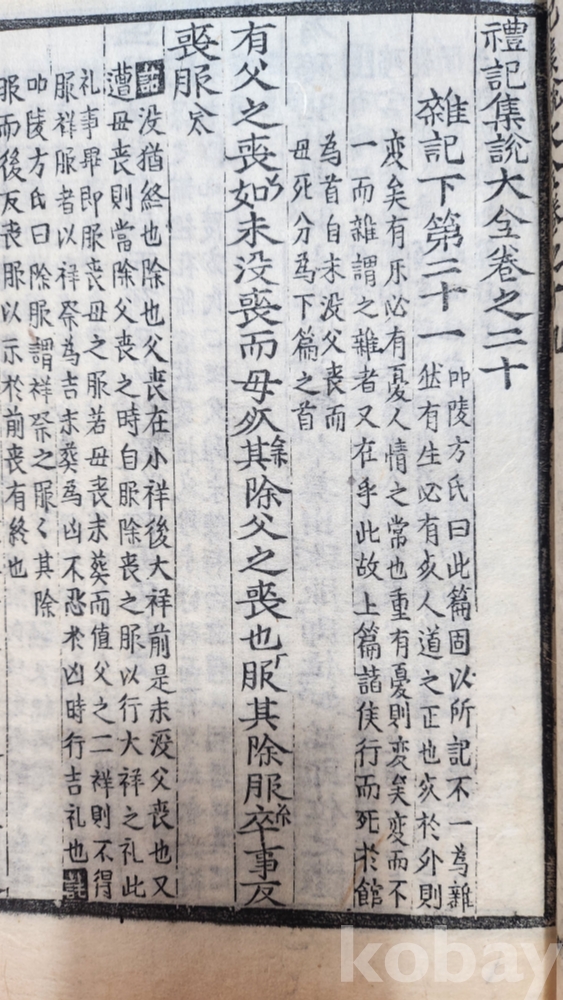 禮記集說大全卷之二十
雜記下第二十一
叩陵方氏曰此篇固以所記不一為雜
然有生必有死人道之正也死於外則
变矣有乐必有憂人情之常也重有憂則变矣变而不
一而雜謂之雜者又在乎此故上篇諸侯行而死於館
為首自未没父丧而
毋死分為下篇之首
有父之喪如未没喪而毋死其除父之喪也服其除服卒事反
喪服
没猶終也除也父丧在小祥後大祥前是未没父丧也又
遭毋丧則當除父丧之時自服除丧之服以行大祥之礼此
礼事畢即服丧毋之服若毋丧未葬而值父之二祥則不得
服祥服者以祥祭為吉未葬為凶不忍於凶時行吉礼也
叩陵方氏曰除服謂祥祭之服〻其除
服而後反丧服以示於前丧有終也
kobay